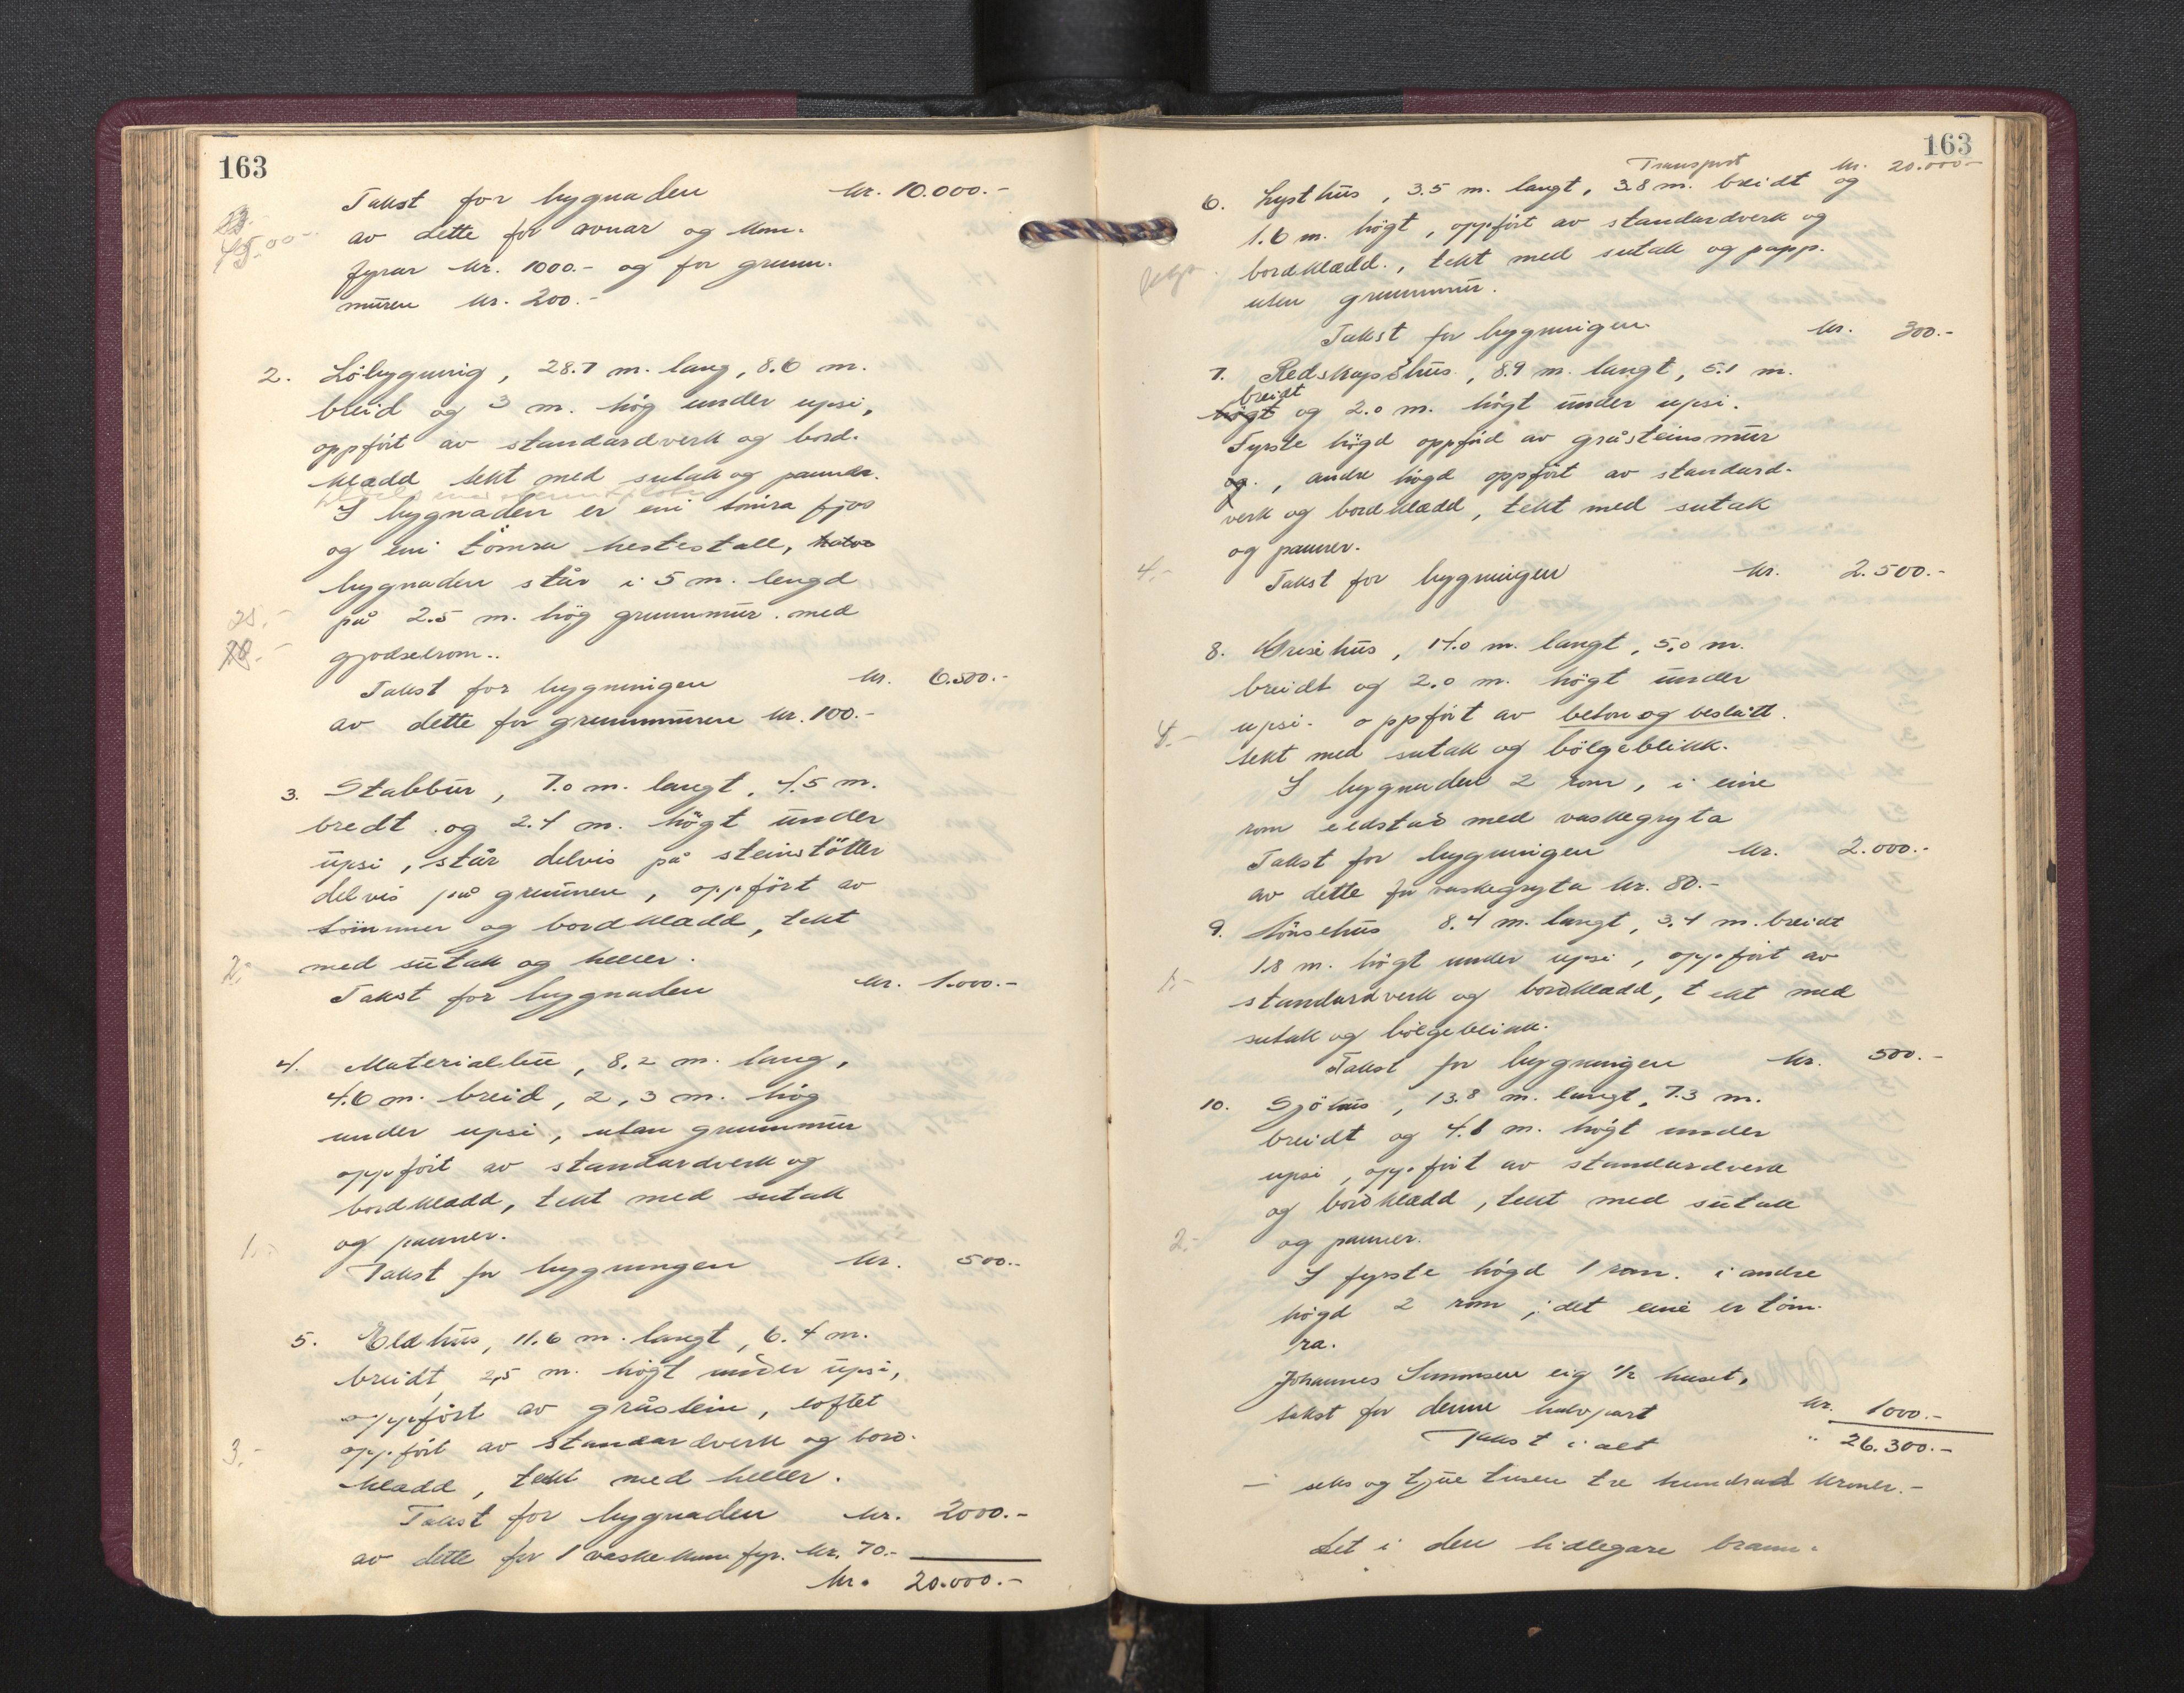 163
Takst for bygnaden kr. 10.000.-
av dette for ovnar og kom-
fyrar kr. 1000.- og for grunn-
muren kr. 200.-
2. Löbygning, 28.7 m. lang, 8.6 m.
breid og 3 m. hög under upsi,
oppfört av standardverk og bord-
klædd tekt med sutak og panner.
I bygnaden er ein tömra fjos
og ein tömra hestestall,
bygnaden står i 5 m. lengd
på 2.5 m. hög grunnmur med
25.-
gjodselrom..
Takst for bygningen kr. 6.500.-
av dette for grunnmuren kr. 100.-
3. Stabbur, 7.0 m. langt, 4.5 m.
bredt og 2.4 m. högt under
upsi, står delvis på steinstötter
delvis på grunnen, oppfört av
tömmer og bordklædd, tekt
med sutak og heller.
2.-
Takst for bygnaden kr. 1.000.-
4. Materialbu, 8.2 m. lang,
4.6 m. breid, 2,3 m. hög
under upsi, utan grunnmur
oppfört av standardverk og
bordklædd, tekt med sutak
og panner.
1.-
Takst for bygningen kr. 500.-
5. Eldhus, 11.6 m. langt, 6.4 m.
breidt, 2,5 m. högt under upsi,
oppfört av gråstein, loftet
oppfört av standardverk og bord-
3.-
klædd, tekt med heller.
Takst for bygnaden kr. 2000.-
av dette for 1 vaskekumfyr. kr. 70.-
kr. 20.000.-
163
Transport kr. 20.000.-
6. Lysthus, 3.5 m. langt, 3.8 m. breidt og
1.6 m. högt, oppfört av standardverk og
bordklædd., tekt med sutak og papp.
uten grunnmur.
Takst for bygningen kr. 300.-
7. Redskapshus, 8.9 m. langt, 5.1 m.
breidt
högt og 2.0 m. högt under upsi.
Fyrste högd oppförd av gråsteinsmur
og., andre högd oppfört av standard-
verk og bordklædd, tekt med sutak
og panner.
4.-
Takst for bygningen kr. 2.500.-
8. Grisehus, 14.0 m. langt, 5,0 m.
breidt og 2.0 m. högt under
upsi. oppfört av beton og beslått.
4.-
tekt med sutak og bölgeblikk.
I bygnaden 2 rom, i eine
rom eldstad med vaskegryta
Takst for bygningen kr. 2.000.-
av dette for vaskegryta kr. 80.-
9. Hönsehus 8.4 m. langt, 3.4 m. breidt
1.8 m. högt under upsi, oppfört av
1.-
standardverk og bordklædd, tekt med
sutak og bölgeblikk.
Takst for bygningen kr. 500.-
10. Sjöhus, 13.8 m. langt, 7.3 m.
breidt og 4.1 m. högt under
upsi, oppfört av standardverk
og bordklædd, tekt med sutak
2.-
og panner.
I fyrste högd 1 rom. i andre
högd 2 rom, det eine er töm-
ra.
Johannes Simonsen eig 1/2 huset,
takst for denne halvpart kr. 1000.-
Takst i alt " 26.300.-
- seks og tjue tusen tre hundrad kroner.-
Det i den tidlegare brann-